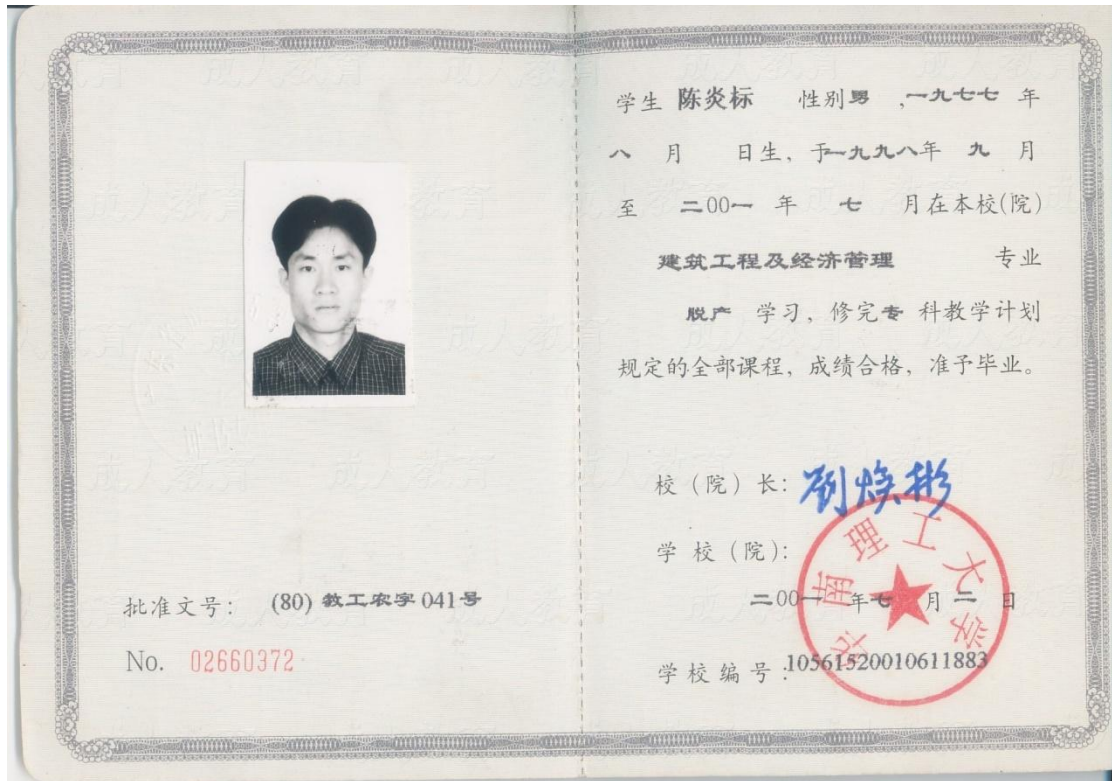 批准文号: (80) 教工农字 041号
No. 02660372
学生 陈炎标 性别男 ,一九七七 年
八 月 日生, 于一九九八年 九 月
至 二00一 年 七 月在本校(院)
建筑工程及经济管理 专业
脱产 学习, 修完专 科教学计划
规定的全部课程, 成绩合格, 准予毕业。
校 (院) 长: 刘焕彬
学 校 (院):
华南理工大学
二00一 年七 月 二 日
学 校 编 号:10561520010611883
成人教育